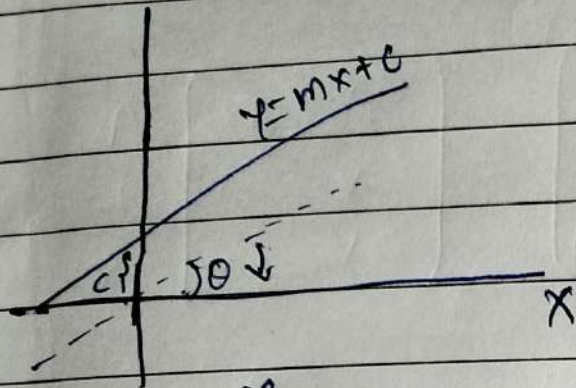 y=mx+c
c
θ
X